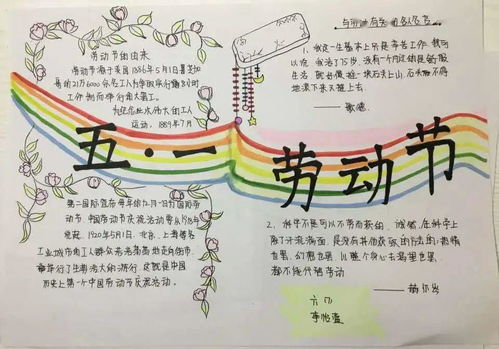 劳动节的由来
劳动节源于美国1886年5月1日芝加
哥的21万6000余名工人为争取实行8小时
工作制而举行大罢工。
为纪念这次伟大的工人
运动，1889年7月
第二国际宣布每年的五月一日为国际劳
动节。中国劳动节庆祝活动
1920年5月1日，北京、上海
工业城市的工人群众走向街市、
举行了声势浩大的游行，这就是中国
历史上第一个中国劳动节庆祝活动。
五·一劳动节
1、我这一生基本上只是辛苦工作，我可
以说，我活了75岁，没有一个月过的是舒服
生活，就好像推一块石头上山，石头不
地滚下来又推上去。
——歌德
2、科学不是可以不劳而获的，诚然，在科学上
除了汗流满面是没有其他获致的方法的；热情
也罢，幻想也罢，以整个身心去渴望也罢，
都不能代替劳动
——赫尔岑